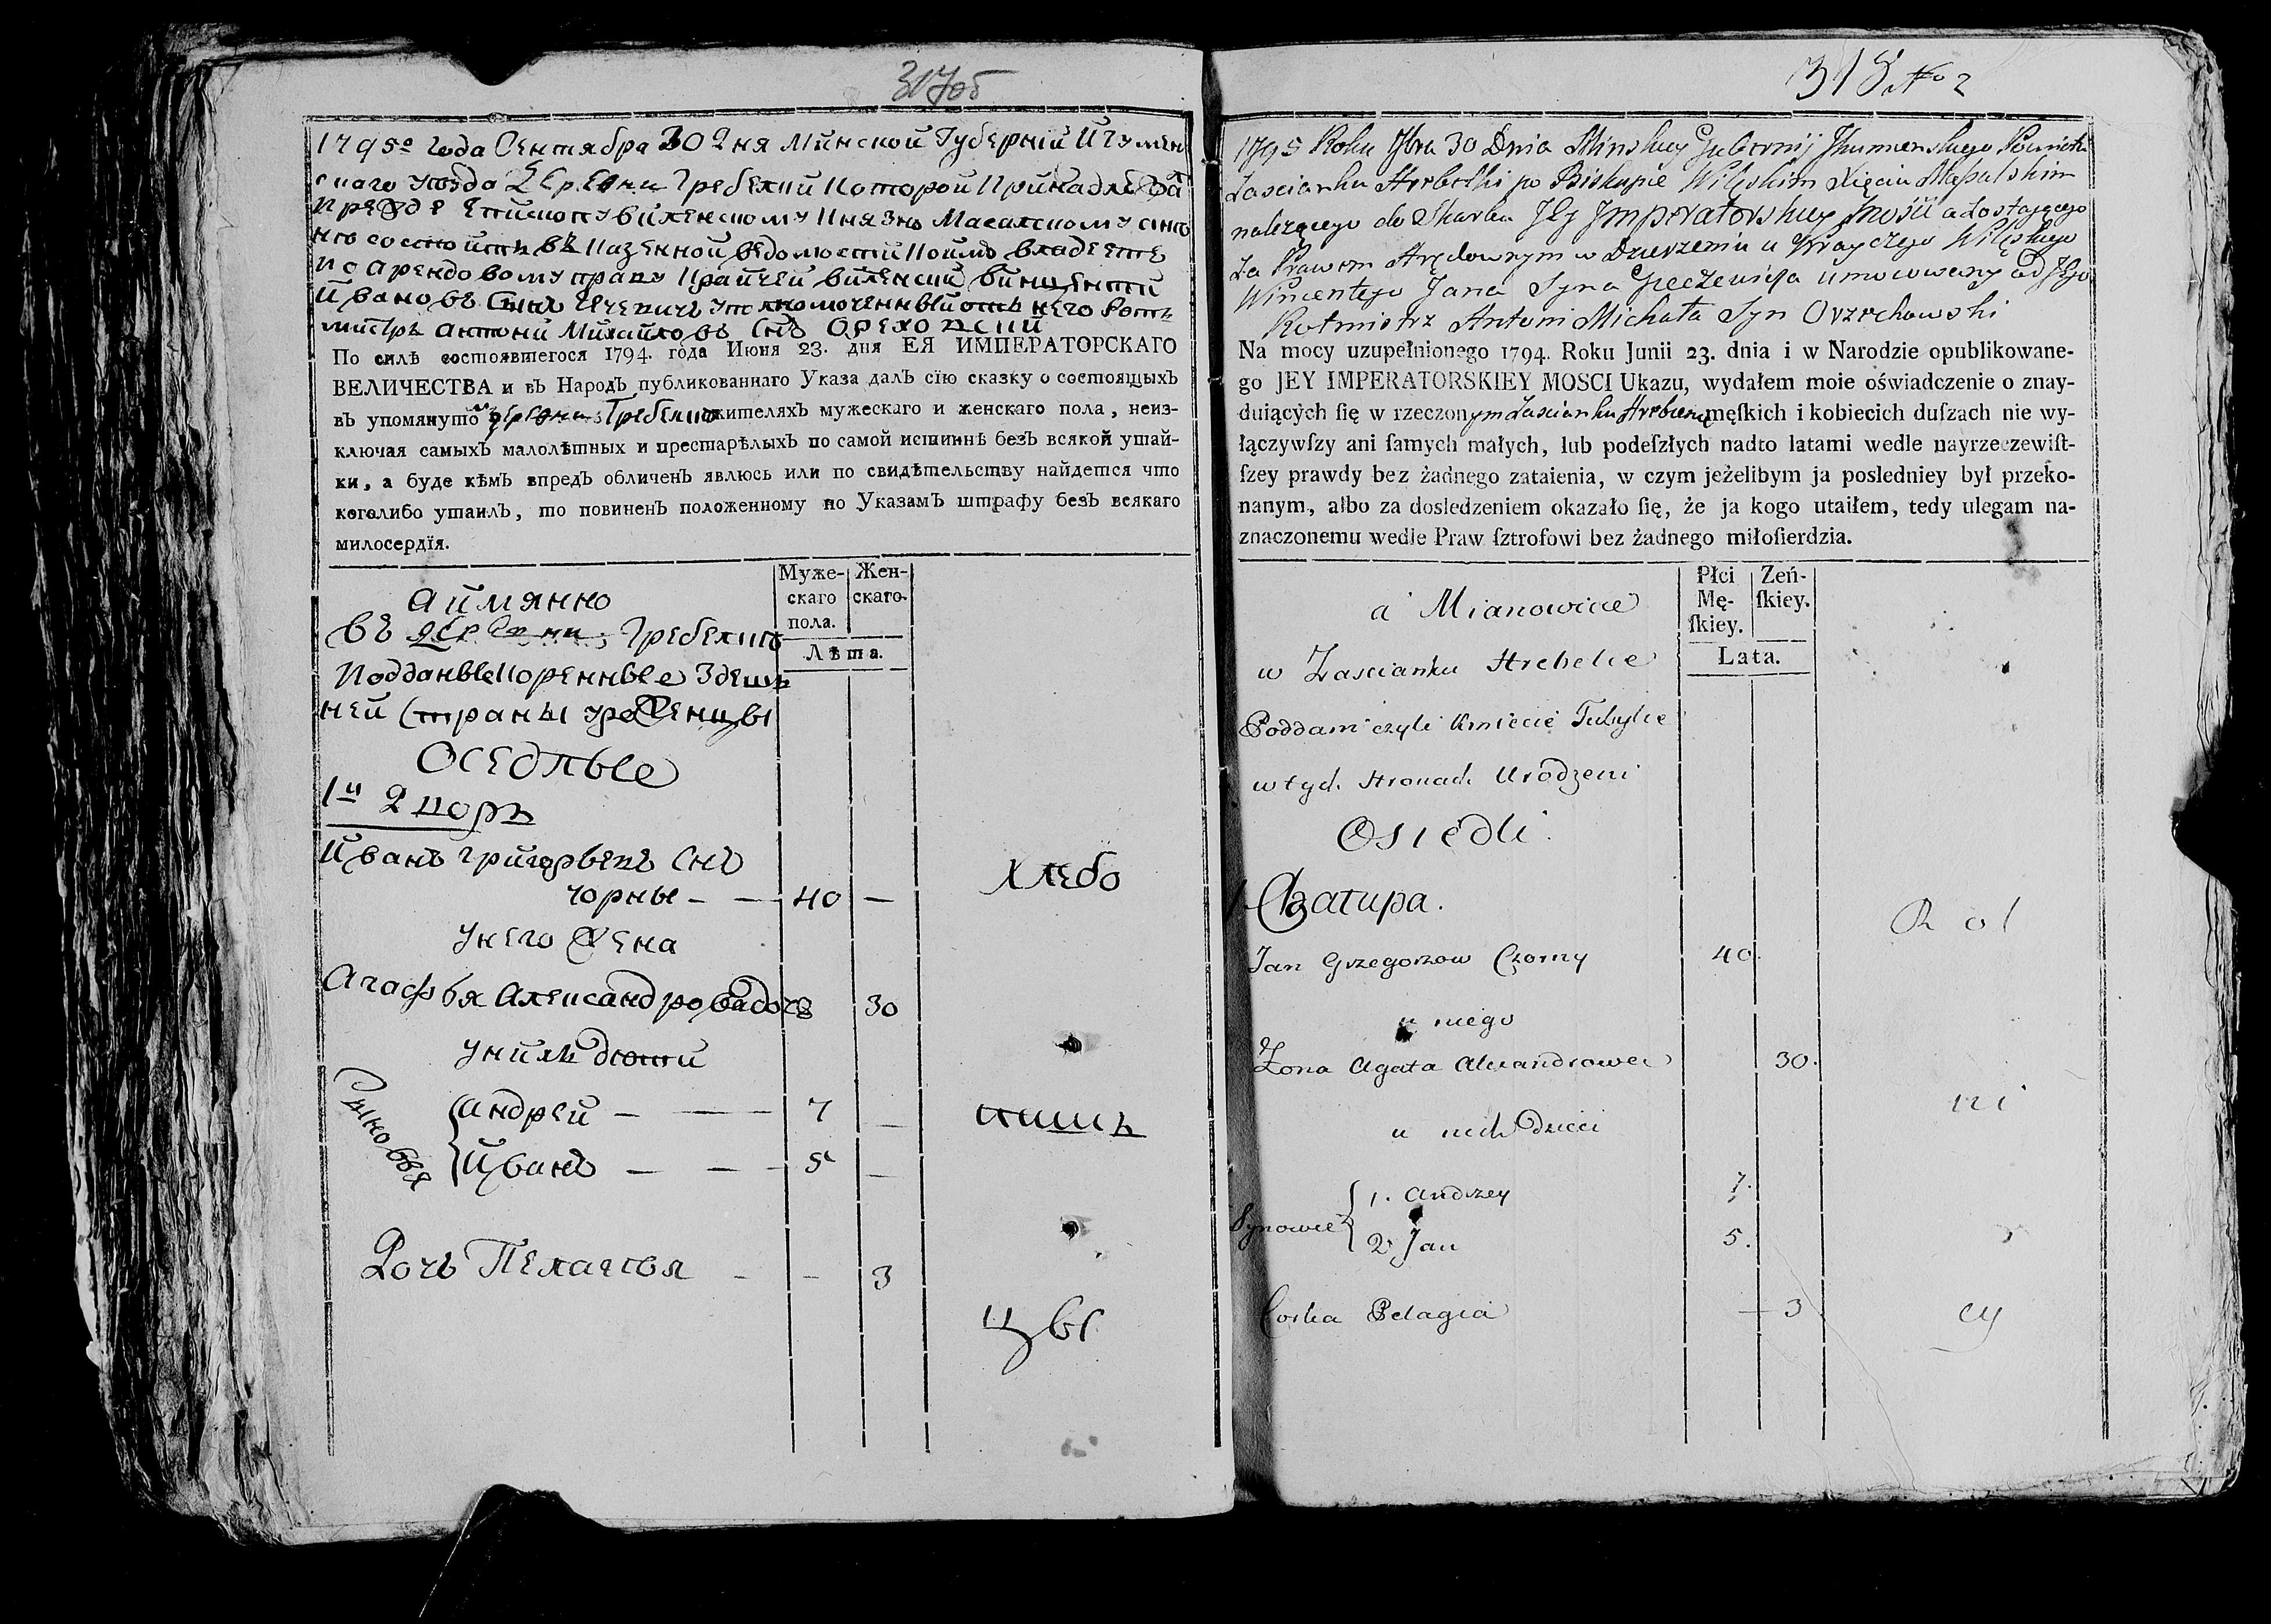 317об
1795го года Сентября 30 Дня Минской Губернiи Игумен
скаго уезда Деревни Гребелки которой принадлежа
прежде епископу виленскому князю Масалскому а ны
не состоитъ въ казенной ведомости коимъ владеетъ
по арендовому праву крайчей виленски винцентiй
Ивановъ сынъ уполномоченный отъ него Рот
мистръ антонiй Михайловъ Снъ Ореховскiй
По силѣ состоявшегося 1794. года Июня 23. дня ЕЯ ИМПЕРАТОРСКАГО
ВЕЛИЧЕСТВА и въ Народъ публикованнаго Указа далъ сїю сказку о состоящыхъ
въ упомянутой деревни Гребелки жителяхъ мужескаго и женскаго пола, неиз-
ключая самыхъ малолѣтных и престарѣлыхъ по самой истиннѣ безъ всякой утай-
ки, а буде кѣмъ впредъ обличенъ явлюсь или по свидѣтельству найдется что
коголибо утаилъ, то повиненъ положенному по Указамъ штрафу безъ всякаго
милосердїя.
Муже- Жен-
скаго скаго.
пола.
Лѣта.
а имянно
въ деревни Гребелкѣ
подданые коренные здеш
ней страны уроженцы
Оседлые
1й Дворъ
Иванъ григорьевъ Снъ
чорны — — 40 —
хлебо
унего жена
Агафья Александрова дочь 30
унихъ дети
Сыновья
Андрей — — 7 —
пашъ
Иванъ — — 5 —
Дочь Пелагея — — 3
цы
318 No 2
1795 Roku 7bra 30 Dnia Minskiey Gubernij Jhumenskiego Powiatu
Zascianku Hrebelki po Biskupie Wilęskim Xięciu Massalskim
należącego do Skarbu Jey Jmperatorskiey Jmości a dostającego
Za Prawem Arędownym w Dzierzeniu u Krayczego Wilęskiego
Wincentego Jana Syna umocowany od Jego
Rotmistrz Antoni Michała Syn Orzechowski
Na mocy uzupełnionego 1794. Roku Junii 23. dnia i w Narodzie opublikowane-
go JEY IMPERATORSKIEY MOSCI Ukazu, wydałem moie oświadczenie o znay-
duiących ſię w rzeczonym Zascianku Hrebelce męſkich i kobiecich duſzach nie wy-
łączywſzy ani ſamych małych, lub podeſzłych nadto latami wedle nayrzeczewiſt-
ſzey prawdy bez żadnego zataienia, w czym jeżelibym ja posledniey był przeko-
nanym, albo za dosledzeniem okazało ſię, że ja kogo utaiłem, tedy ulegam na-
znaczonemu wedle Praw ſztrofowi bez żadnego miłoſierdzia.
Płci Zeń-
Mę- ſkiey.
ſkiey.
Lata.
a Mianowicie
w Zascianku Hrebelce
Poddani czyli Kmiecie Tubylce
w tych stronach Urodzeni
Osiedli
1 Chatupa.
Rol
Jan Grzegorzow Czorny 40.
u niego
Zona Agata Alexandrowa 30.
ni
u nich Dzieci
Synowie
1. Andrzey 7.
2. Jan 5.
Corka Pelagia — 3
cy